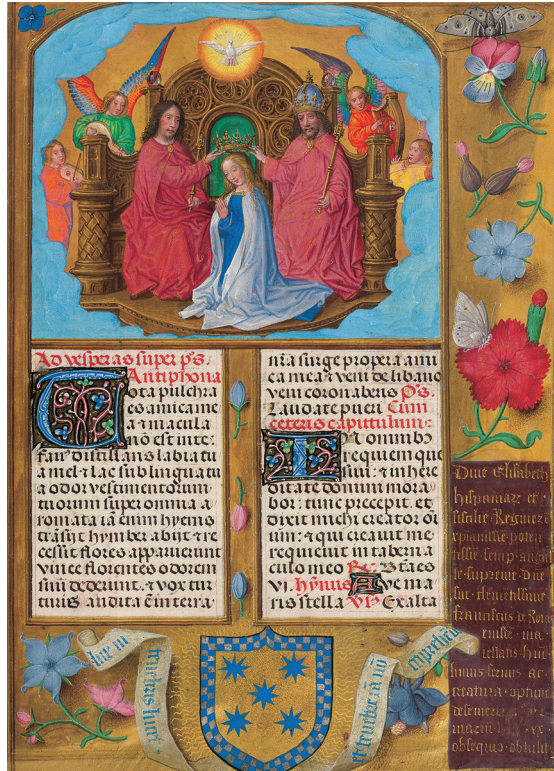 Ad vesperas super ps.
Antiphona
Tota pulchra
es amica mea
& macula
nō est in te:
fauꝰ distillans labia tu
a mel & lac sub lingua tu
a odor vestimentorum
tuorum super omnia a
romata iā enim hyems
trāsijt hymber abijt & re
cessit flores apparuerunt
vinee florentes odorem
sui dederunt. & vox tur
turis audita ē in terra.
nr̄a surge propera ami
ca mea & veni de libano
veni coronaberis Ps.
Laudate pueri Cum
ceteris capittulum:
In omnibꝰ
requiem que
siui: & in here
ditate domini mora
bor: tunc precepit. et
dixit michi creator oī
um: & qui creauit me
requieuit in taberna
culo meo R. Btaēs
vi. hymus Aue ma
ris stella V Exalta
lux in
tenebris lucet
et tenebre eā nō
cōprehēderūt
Diue Elisabeth
hispaniarū et
sisilie Regine
xpianissīe poten
tissīe semp. auguste
suprême Dne
sue clemētissime
franciscus de Roias
eiusdē. ma
iestatis. hui
limus seruus ac
creatura. optime
de se merēti
ex
obsequio obtulit